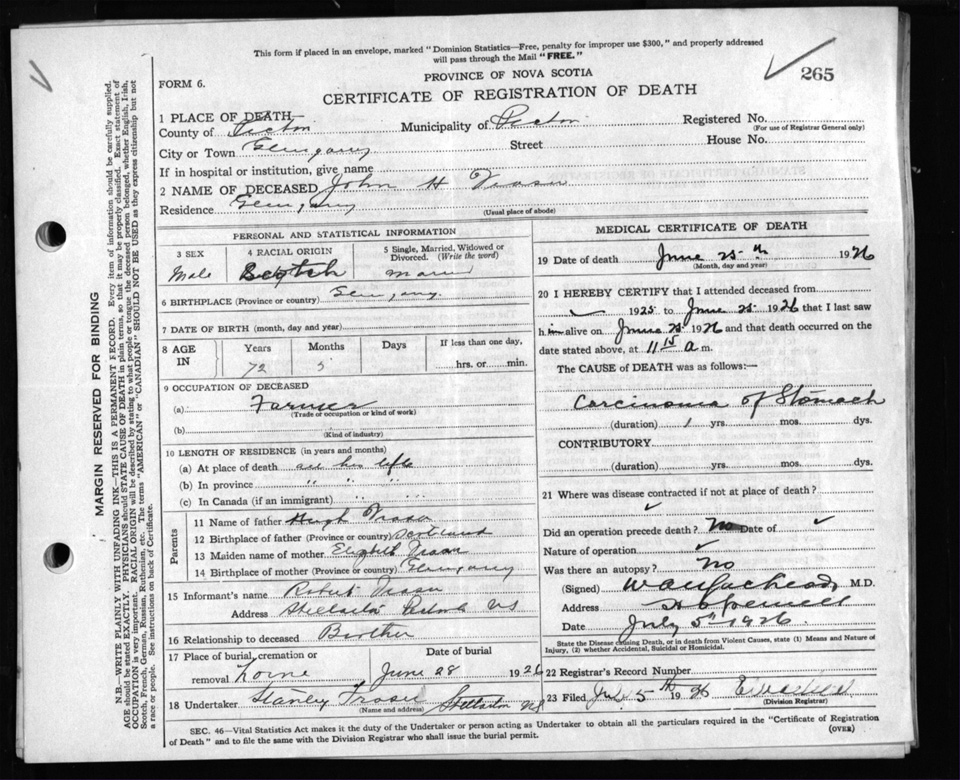 This form if placed in an envelope, marked "Dominion Statistics—Free, penalty for improper use $300," and properly addressed
will pass through the Mail "FREE."
265
FORM 6.
PROVINCE OF NOVA SCOTIA
CERTIFICATE OF REGISTRATION OF DEATH
1 PLACE OF DEATH
County of Pictou Municipality of Pictou Registered No.
(For use of Registrar General only)
City or Town Glengarry Street House No.
If in hospital or institution, give name
2 NAME OF DECEASED John H Frasu
Residence Glengarry
(Usual place of abode)
PERSONAL AND STATISTICAL INFORMATION
3 SEX 4 RACIAL ORIGIN 5 Single, Married, Widowed or Divorced. (Write the word)
Male Scotch
6 BIRTHPLACE (Province or country) Glengarry
7 DATE OF BIRTH (month, day and year)
8 AGE IN Years Months Days If less than one day,
72 5 hrs. or min.
9 OCCUPATION OF DECEASED
(a) Farmer
(Trade or occupation or kind of work)
(b)
(Kind of industry)
10 LENGTH OF RESIDENCE (in years and months)
(a) At place of death all his life
(b) In province " " "
(c) In Canada (if an immigrant) " " "
Parents
11 Name of father Hugh Frasu
12 Birthplace of father (Province or country) Scotland
13 Maiden name of mother Frasu
14 Birthplace of mother (Province or country) Glengarry
15 Informant's name Robert Frasu
Address NS
16 Relationship to deceased Brother
17 Place of burial, cremation or removal Lorne
Date of burial
June 28 1926
18 Undertaker Stanley Frasu NS
(Name and address)
MEDICAL CERTIFICATE OF DEATH
19 Date of death June 25th 1926
(Month, day and year)
20 I HEREBY CERTIFY that I attended deceased from
1925 to June 25 1926 that I last saw
him alive on June 25 1926 and that death occurred on
date stated above, at 11 15 a m.
The CAUSE of DEATH was as follows:—
Carcinoma of Stomach
(duration) 1 yrs. mos. dys.
CONTRIBUTORY
(duration) yrs. mos. dys.
21 Where was disease contracted if not at place of death?
Did an operation precede death? No Date of
Nature of operation
Was there an autopsy? No
(Signed) M.D.
Address Hopewell
Date July 5th 1926
State the Disease causing Death, or in death from Violent Causes, state (1) Means and Nature of
Injury, (2) whether Accidental, Suicidal or Homicidal.
22 Registrar's Record Number
23 Filed July 5th 1926
(Division Registrar)
SEC. 46—Vital Statistics Act makes it the duty of the Undertaker or person acting as Undertaker to obtain all the particulars required in the "Certificate of Registration
of Death" and to file the same with the Division Registrar who shall issue the burial permit.
(OVER)
MARGIN RESERVED FOR BINDING
N.B.—WRITE PLAINLY WITH UNFADING INK—THIS IS A PERMANENT RECORD. Every item of information should be carefully supplied.
AGE should be stated EXACTLY. PHYSICIANS should STATE CAUSE OF DEATH in plain terms, so that it may be properly classified. Exact statement of
OCCUPATION is very important. RACIAL ORIGIN will be described by stating to what people or tongue the deceased person belonged, whether English, Irish,
Scotch, French, German, Russian, Ruthenian, etc. The terms "AMERICAN" or "CANADIAN" SHOULD NOT BE USED as they express citizenship but not
a race or people. See instructions on back of Certificate.